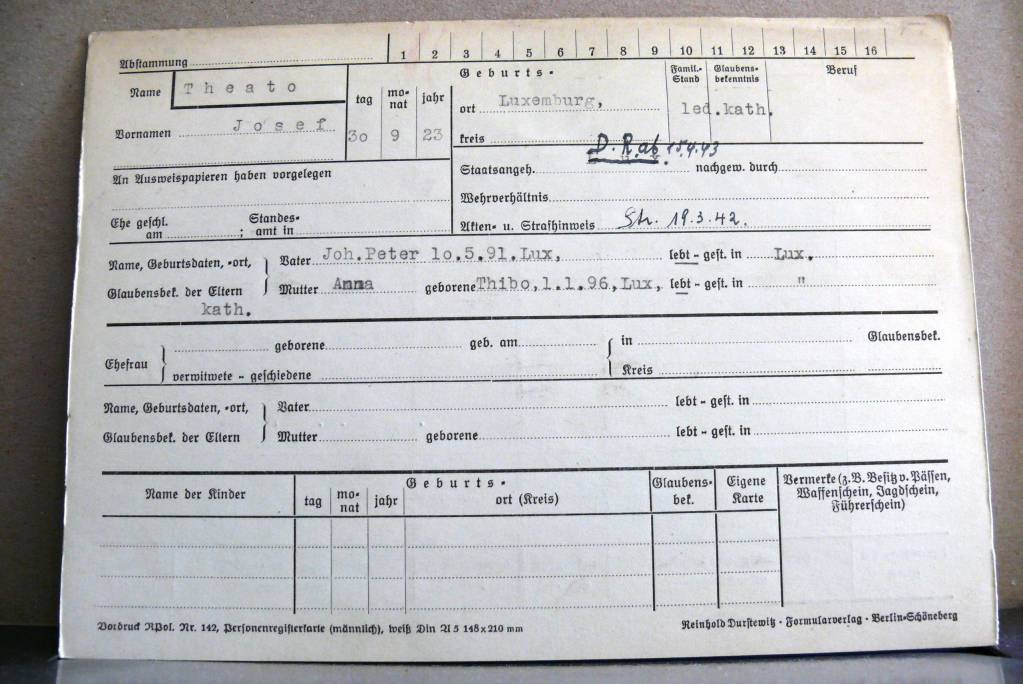 Abstammung 1 2 3 4 5 6 7 8 9 10 11 12 13 14 15 16
Name Theato
Vornamen Josef
tag monat jahr
30 9 23
Geburts-
ort Luxemburg,
kreis
Famil.-Stand
led.
Glaubensbekenntnis
kath.
Beruf
D. R. ab 15.4.43
An Ausweispapieren haben vorgelegen
Staatsangeh. nachgew. durch
Wehrverhältnis
Ehe geschl. am ; Standesamt in
Akten- u. Strafhinweis Str. 19.3.42.
Name, Geburtsdaten, -ort, Vater Joh.Peter lo.5.91.Lux, lebt - gest. in Lux.
Glaubensbek. der Eltern Mutter Anna geborene Thibo,1.1.96,Lux, lebt - gest. in "
kath.
Ehefrau geborene geb. am in Glaubensbek.
verwitwete - geschiedene Kreis
Name, Geburtsdaten, -ort, Vater lebt - gest. in
Glaubensbek. der Eltern Mutter geborene lebt - gest. in
Name der Kinder
Geburts-
tag monat jahr ort (Kreis)
Glaubensbek.
Eigene Karte
Vermerke (z.B. Besitz v. Pässen, Waffenschein, Jagdschein, Führerschein)
Vordruck RPol. Nr. 142, Personenregisterkarte (männlich), weiß Din A 5 148 x 210 mm
Reinhold Durstewitz · Formularverlag · Berlin-Schöneberg